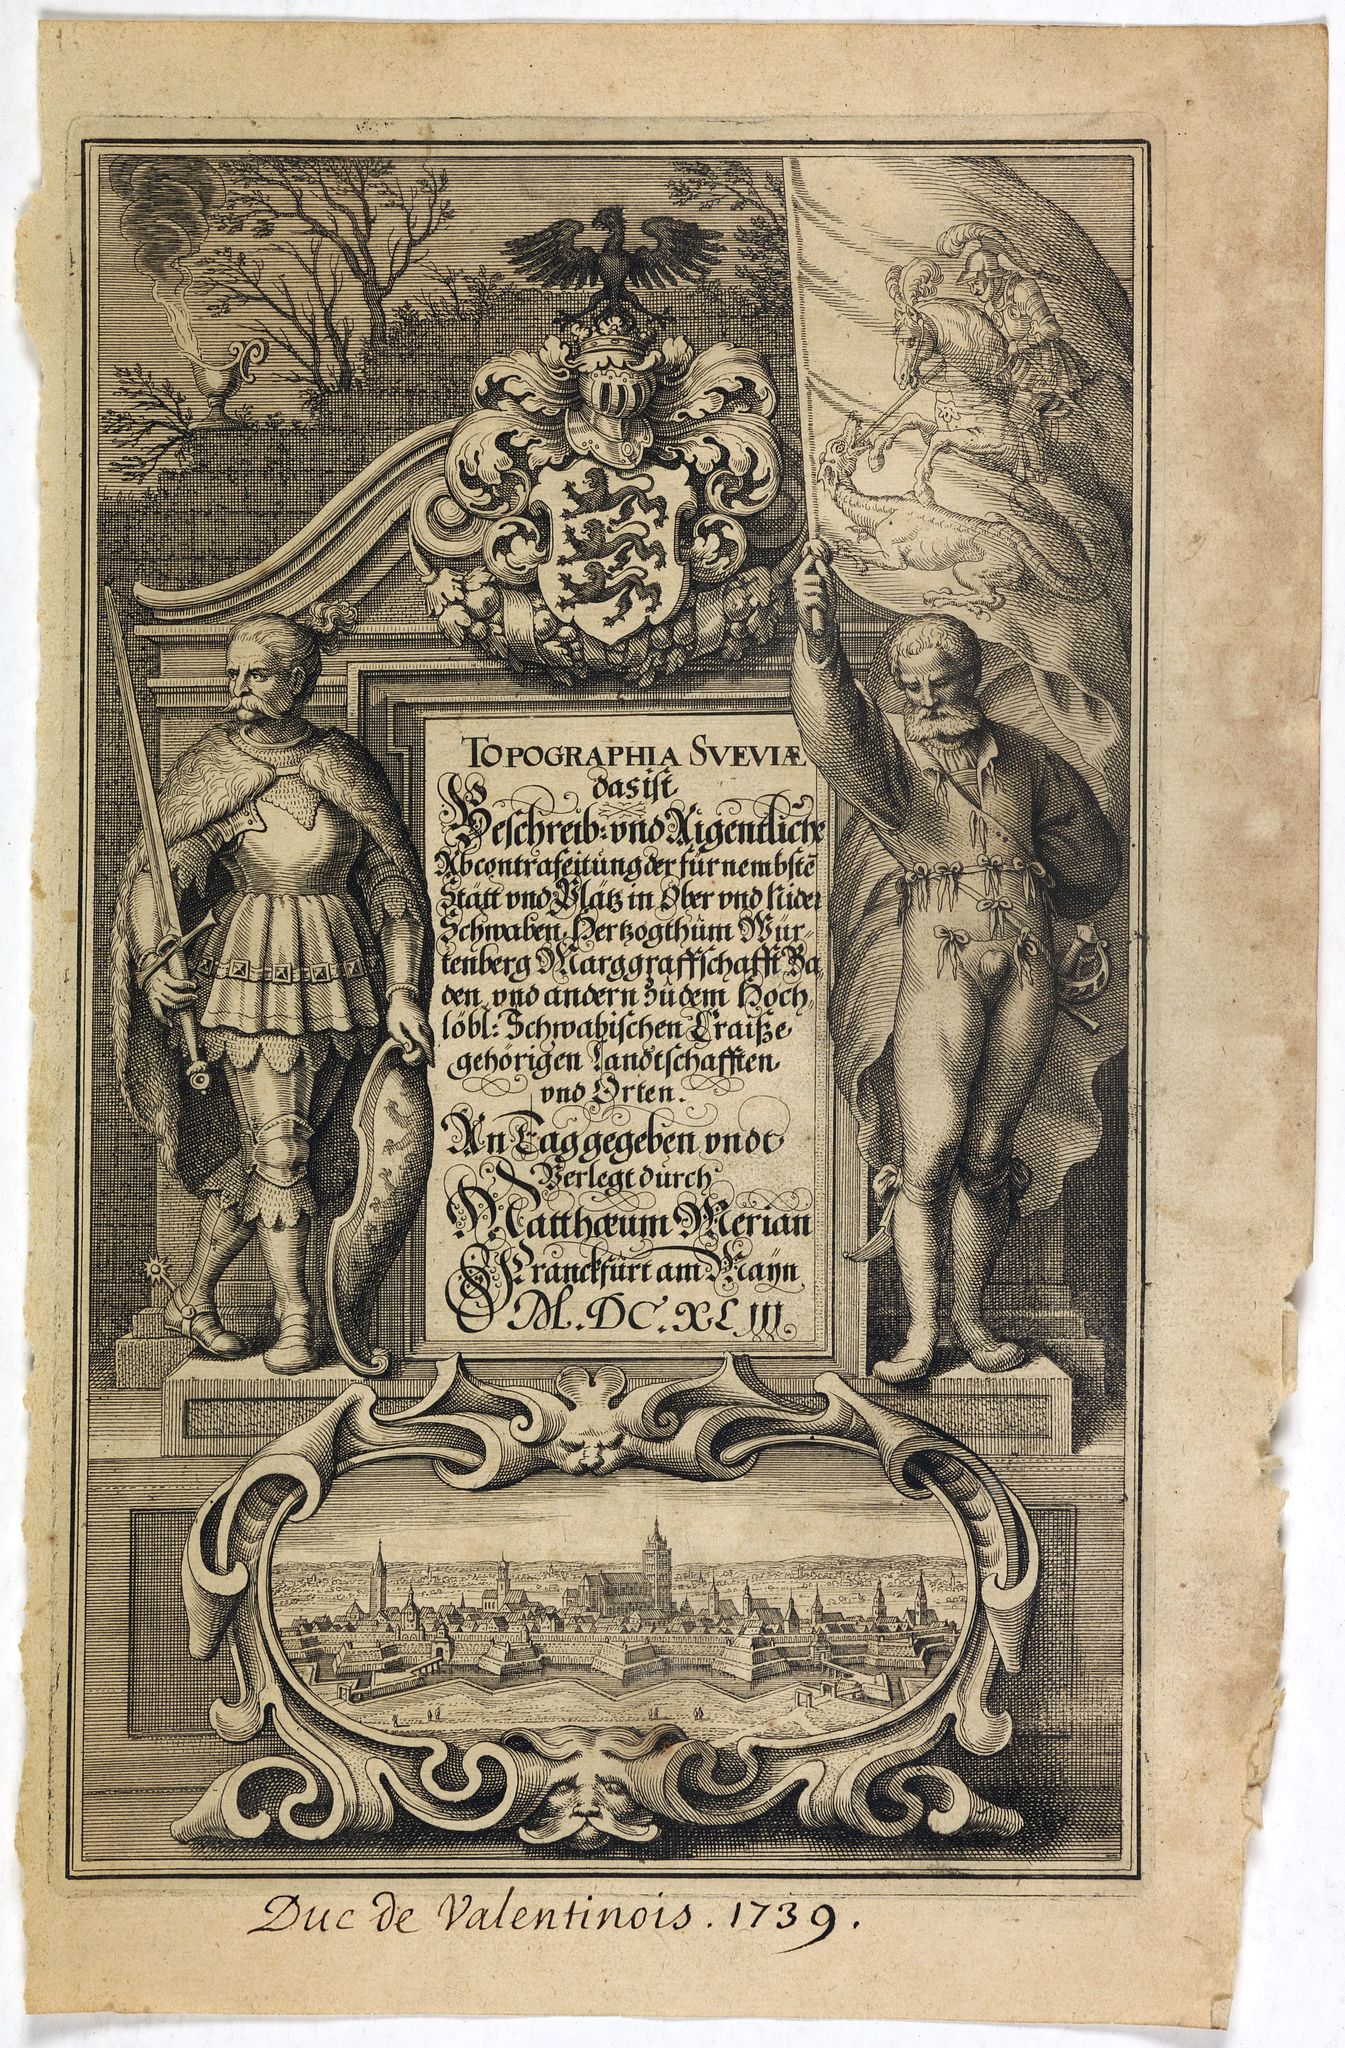 TOPOGRAPHIA SVEVIÆ
das ist
Beschreib: vnd Aigentliche
Abcontrafeitung der fürnembstē
Stätt vnd Plätz in Ober vnd Nider
Schwaben, Hertzogthum Wür-
tenberg Marggraffschafft Ba,
den vnd andern zu dem Hoch,
löbl: Schwabischen Craiße
gehörigen Landtschafften
vnd Orten.
An Tag gegeben vndt
Verlegt durch
Matthæum Merian
Franckfurt am Mayn
M.DC.XLIII
Duc de Valentinois. 1739.